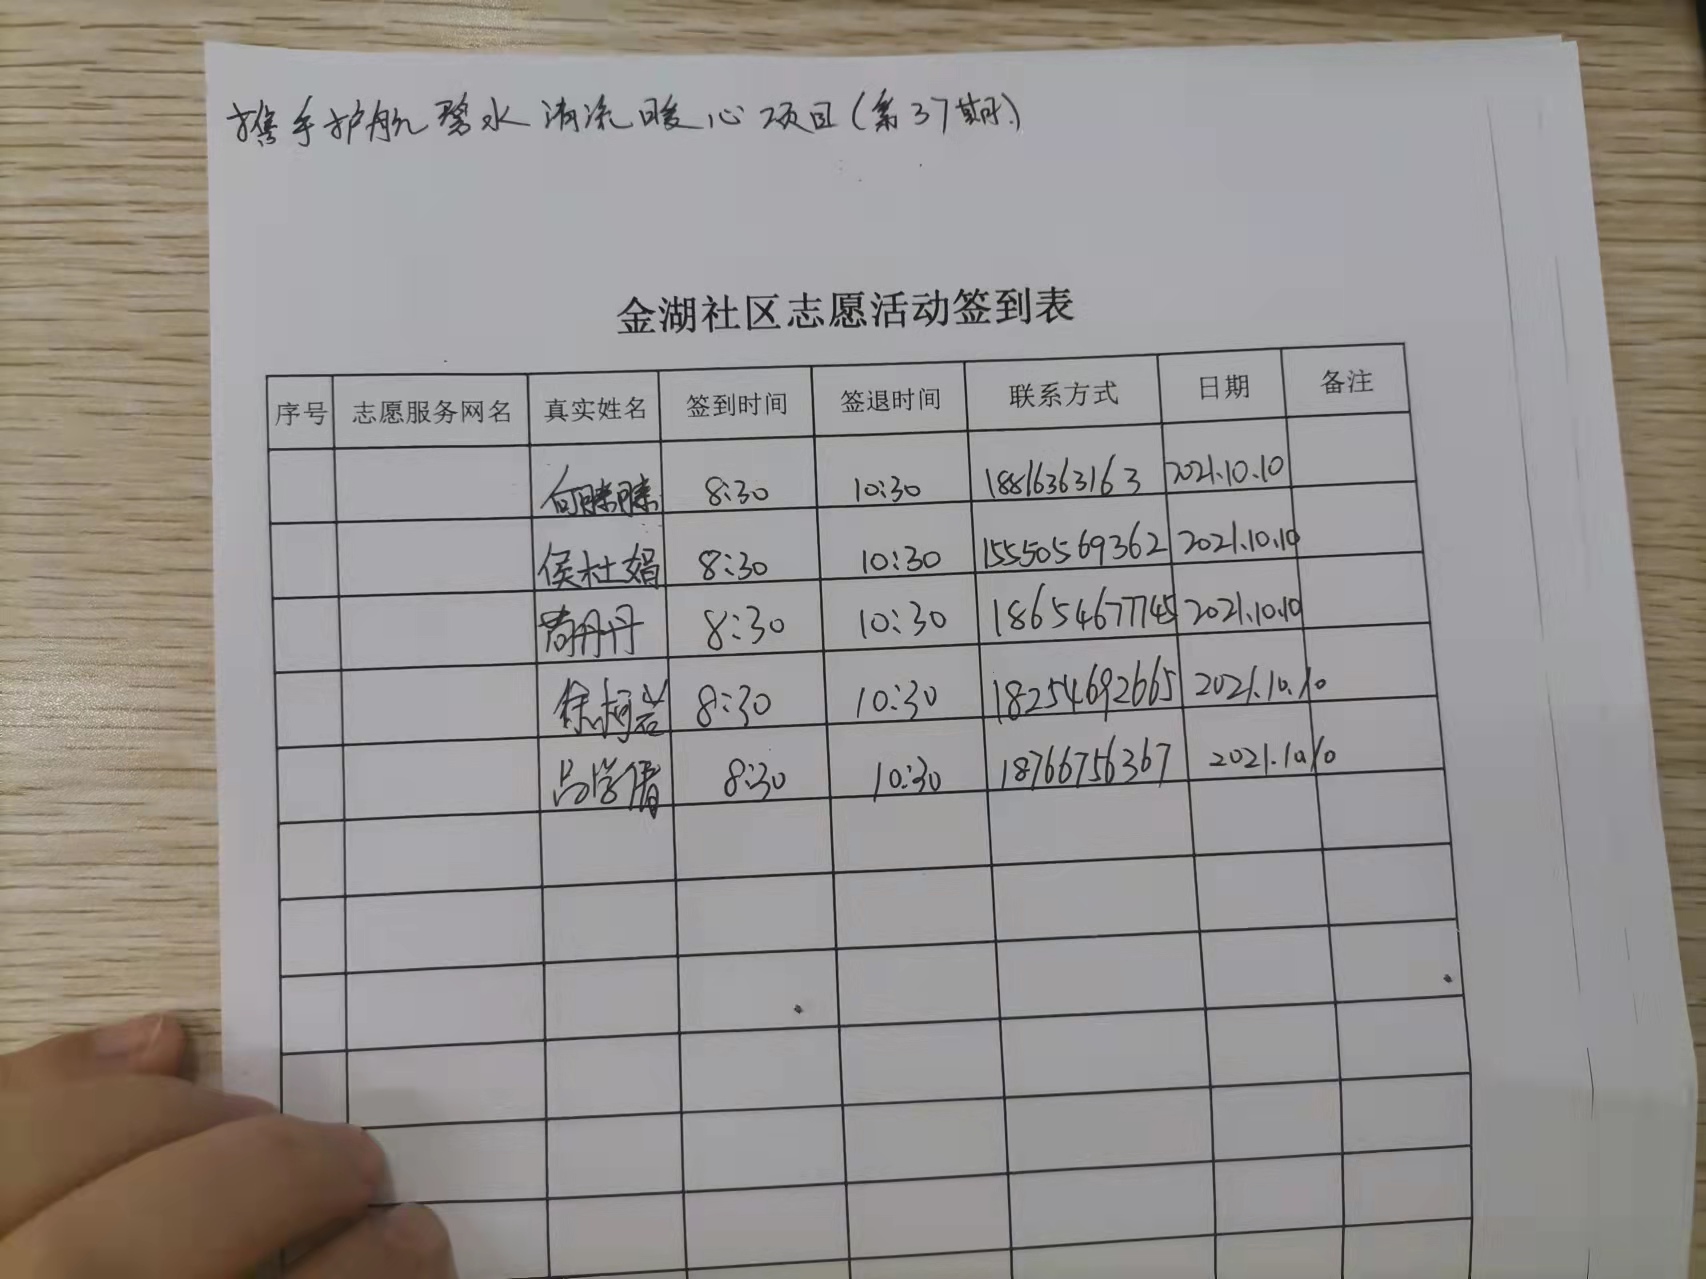 携手护航碧水清流暖心项目(第37期)
金湖社区志愿活动签到表
序号 志愿服务网名 真实姓名 签到时间 签退时间 联系方式 日期 备注
8:30 10:30 18816363163 2021.10.10
侯杜娟 8:30 10:30 15550569362 2021.10.10
苟丹丹 8:30 10:30 18654677745 2021.10.10
徐柯岩 8:30 10:30 18254692665 2021.10.10
吕学倩 8:30 10:30 18766756367 2021.10.10